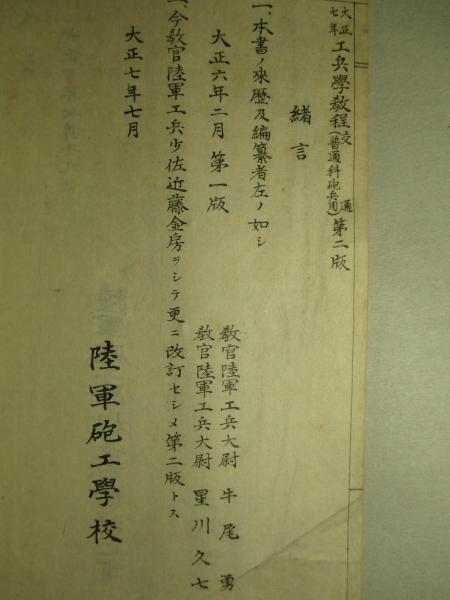 大正七年 工兵學教程 交通(普通科砲兵用) 第二版
緒言
一、本書ノ來歷及編纂者左ノ如シ
大正六年二月 第一版
教官陸軍工兵大尉 牛尾勇
教官陸軍工兵大尉 星川久七
一、今教官陸軍工兵少佐近藤金房ヲシテ更ニ改訂セシメ第二版トス
大正七年七月
陸軍砲工學校